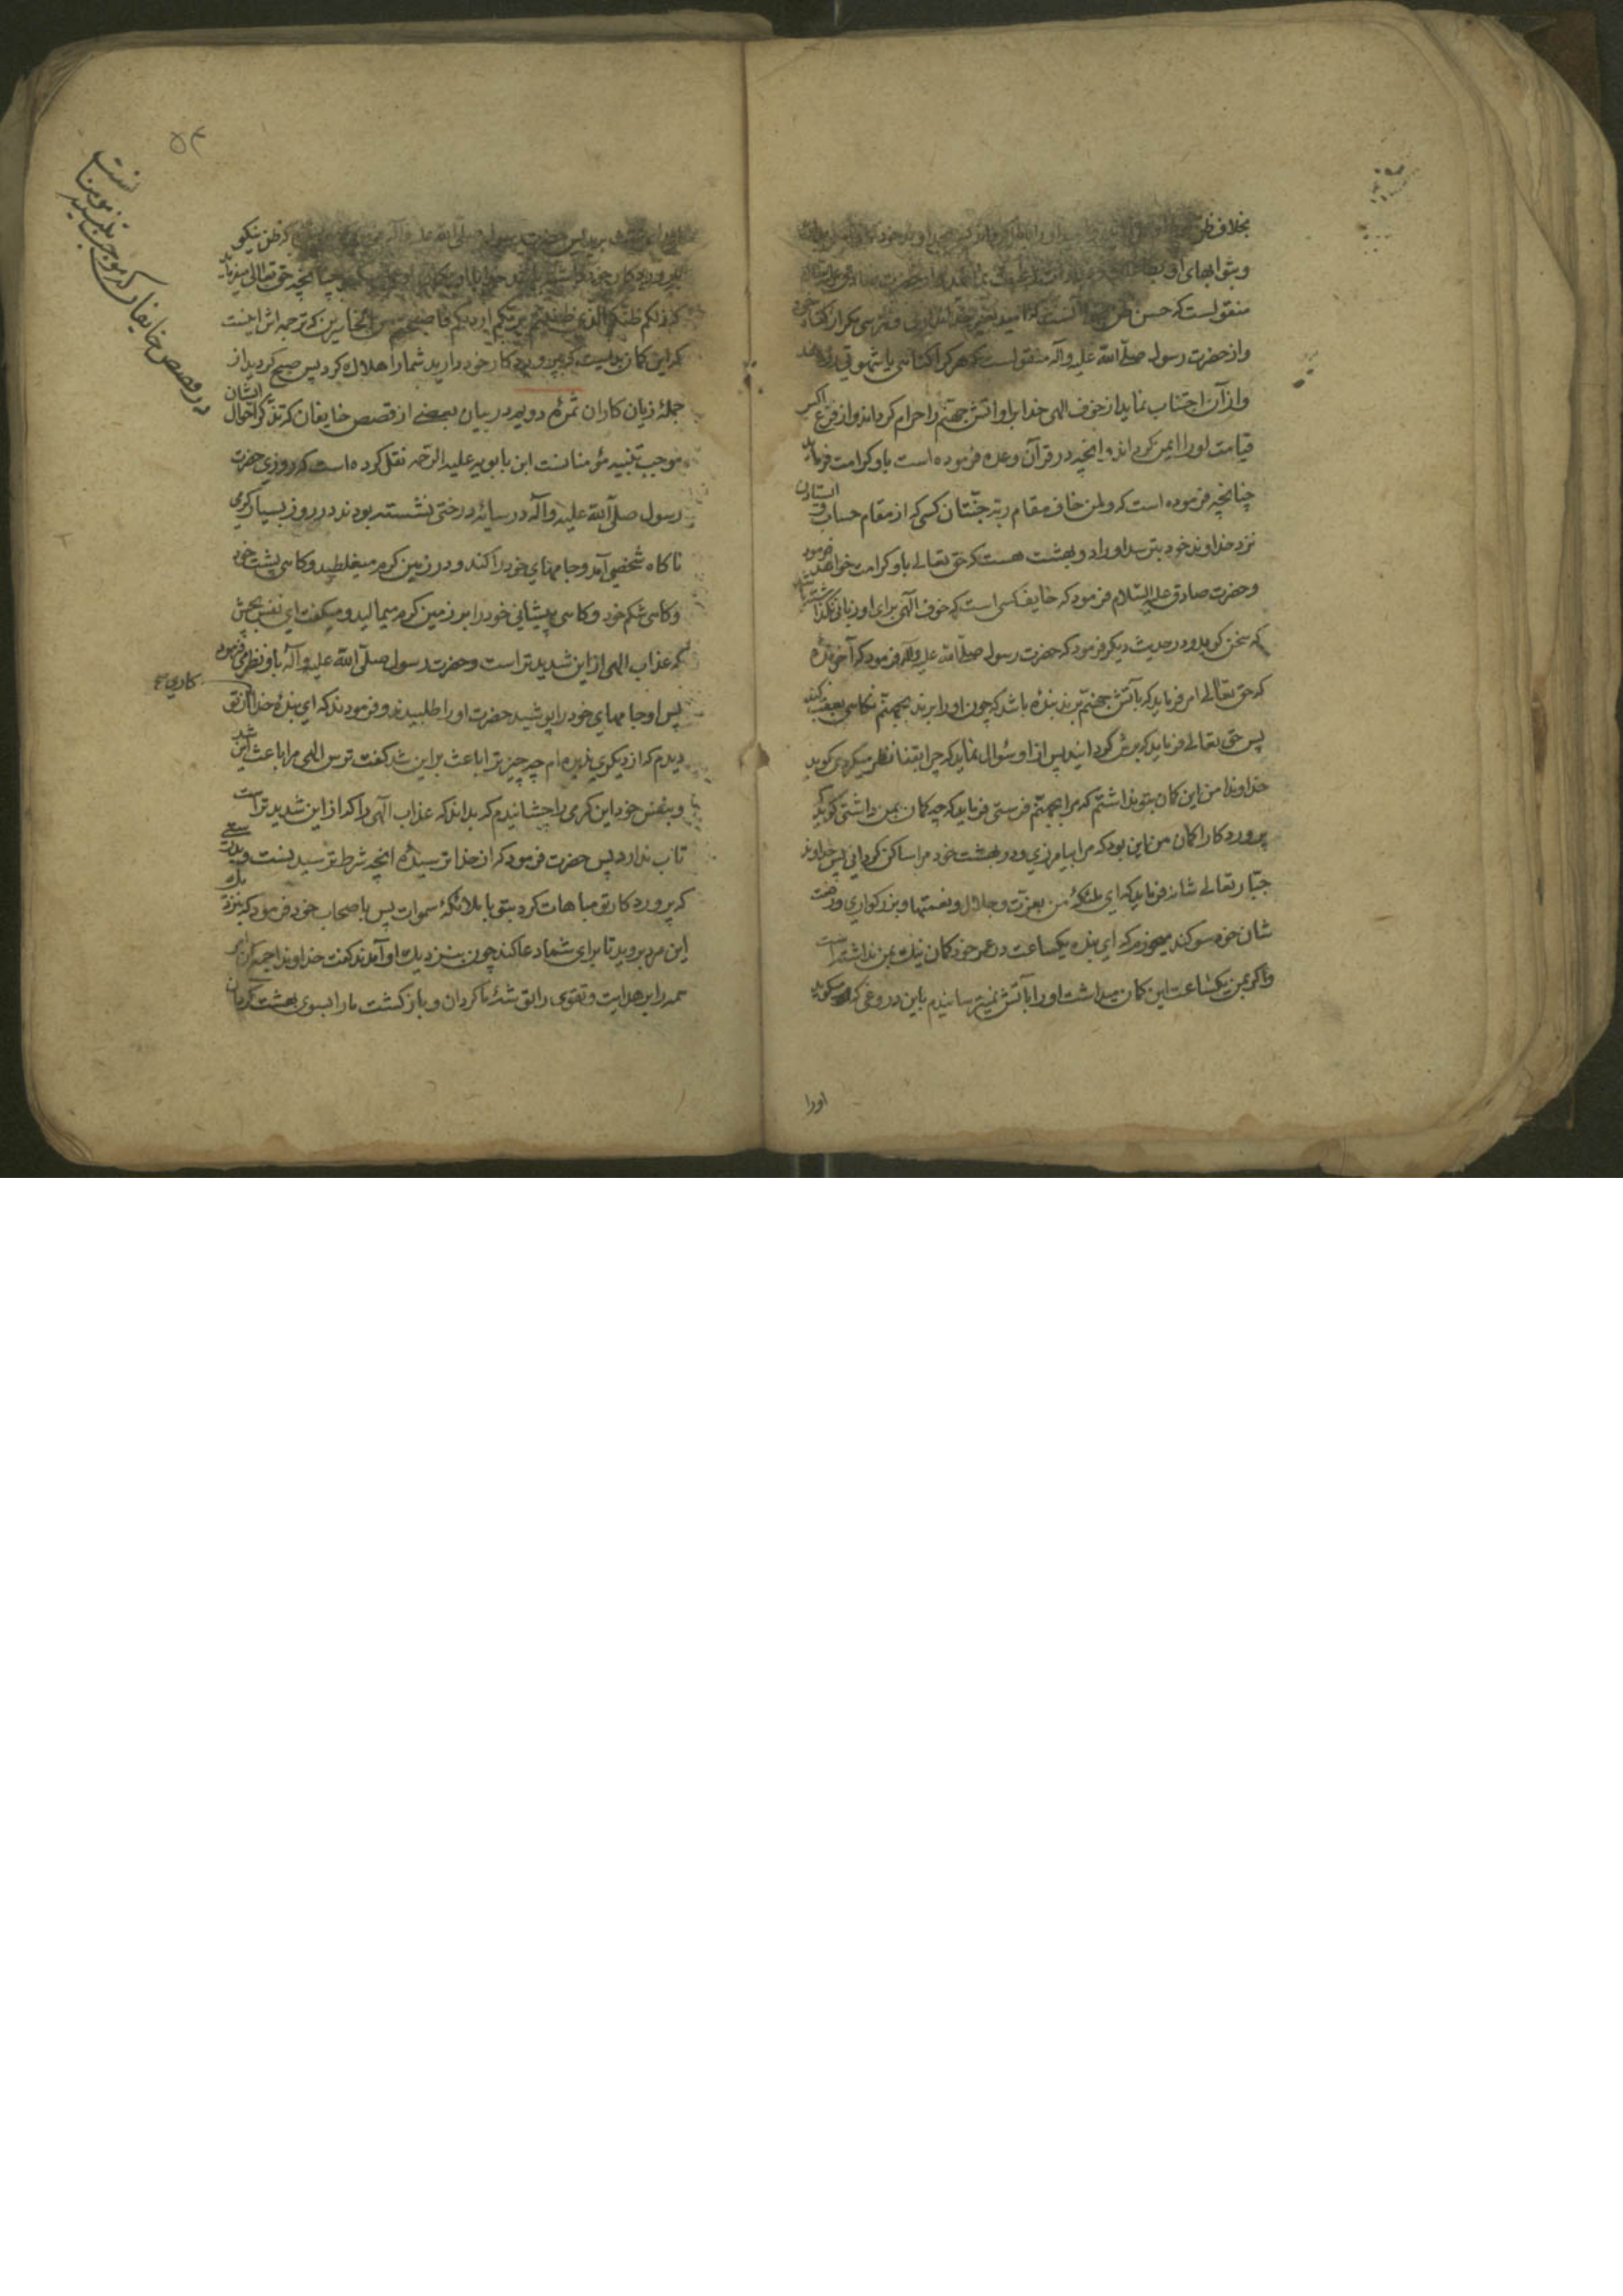 بخلاف ظن
و بثوابهای او
منقولست که حسن ظن بخدا آنست که امید نداری و نترسی مگر از گناه خود
و از حضرت رسول صلّی الله علیه و آله منقولست که هر که را گناهی یا شهوتی رو دهد
و از آن اجتناب نماید از خوف الهی خدا بر او آتش جهنّم را حرام گرداند و از فزع اکبر
قیامت او را ایمن گرداند و آنچه در قرآن وعده فرموده است باو کرامت فرماید
چنانچه فرموده است که و لمن خاف مقام ربّه جنّتان کسی که از مقام حساب و ایستادن
نزد خداوند خود بترسد او را دو بهشت هست که حق تعالی باو کرامت خواهد فرمود
و حضرت صادق علیه السّلام فرمود که خایف کسی است که خوف الٓهی برای او زبانی نگذاشته باشد
که سخن گوید و در حدیث دیگر فرمود که حضرت رسول صلّی الله علیه و آله فرمود که آخر بنده
که حق تعالی امر فرماید که بآتش جهنّم برند بندهٔ باشد که چون او را برند بجهنّم نگاهی بعقب کند
پس حق تعالی فرماید که برش گردانید پس از او سؤال نماید که چرا بقفا نظر میکردی گوید
خداوندا من این گمان بتو نداشتم که مرا بجهنّم فرستی فرماید که چه گمان بمن داشتی گوید که
پروردگارا گمان من این بود که مرا بیامرزی و در بهشت خود مرا ساکن گردانی پس خداوند
جبّار تعالی شانه فرماید که ای ملئکهٔ من بعزّت و جلال و نعمتها و بزرگواری و رفعت
شان خود سوگند میخورم که ای بنده یکساعت در عمر خود گمان نیک بمن نداشته است
و اگر بمن یکساعت این گمان میداشت او را بآتش نمیترسانیدم باین دروغی که میگوید
اورا
۵۴
در قصص خایفان که موجب تنبیه مومنانست
برید پس حضرت رسول صلّی الله علیه و آله که ظن نیکو
بپروردگار خود چنانچه حق تعالی میفرماید
که ذلکم ظنّکم الّذی ظننتم بربّکم اردیکم فاصبحتم من الخاسرین که ترجمه اش اینست
که این گمان بدیست که بپروردگار خود دارید شما را هلاک کرد پس صبح کردید از
جملهٔ زیان کاران ثمرهٔ دویم در بیان بعضی از قصص خایفان که تذکر احوال ایشان
موجب تنبیه مؤمنانست ابن بابویه علیه الرّحمه نقل کرده است که روزی حضرت
رسول صلّی الله علیه و آله در سایهٔ درختی نشسته بودند در روز بسیار گرمی
ناگاه شخصی آمد و جامهای خود را کند و در زمین گرم میغلطید و گاهی پشت خود
و گاهی شکم خود و گاهی پیشانی خود را بر زمین گرم میمالید و میگفت ای نفس بچش
که عذاب الهی از این شدید تر است و حضرت رسول صلّی الله علیه و آله باو نظر می فرمود
پس او جامهای خود را پوشید حضرت او را طلبیدند و فرمودند که ای بندهٔ خدا از تو
کاری
دیدم که از دیگری ندیده ام چه چیز ترا باعث بر این شد گفت ترس الهی مرا باعث این شد
و بنفس خود این گرمی را چشانیدم که بداند که عذاب الٓهی را که از این شدید تر است
تاب ندارد پس حضرت فرمود که از خدا ترسیدهٔ آنچه شرط ترسیدنست و بدرستی
که پروردگار تو مباهات کرد بتو با ملائکهٔ سموات پس باصحاب خود فرمود که بنزدیک
این مرد بروید تا برای شما دعا کند چون بنزدیک او آمدند گفت خداوندا جمع کن امر
همه را بر هدایت و تقوی را توشهٔ ما گردان و بازگشت ما را بسوی بهشت گردان